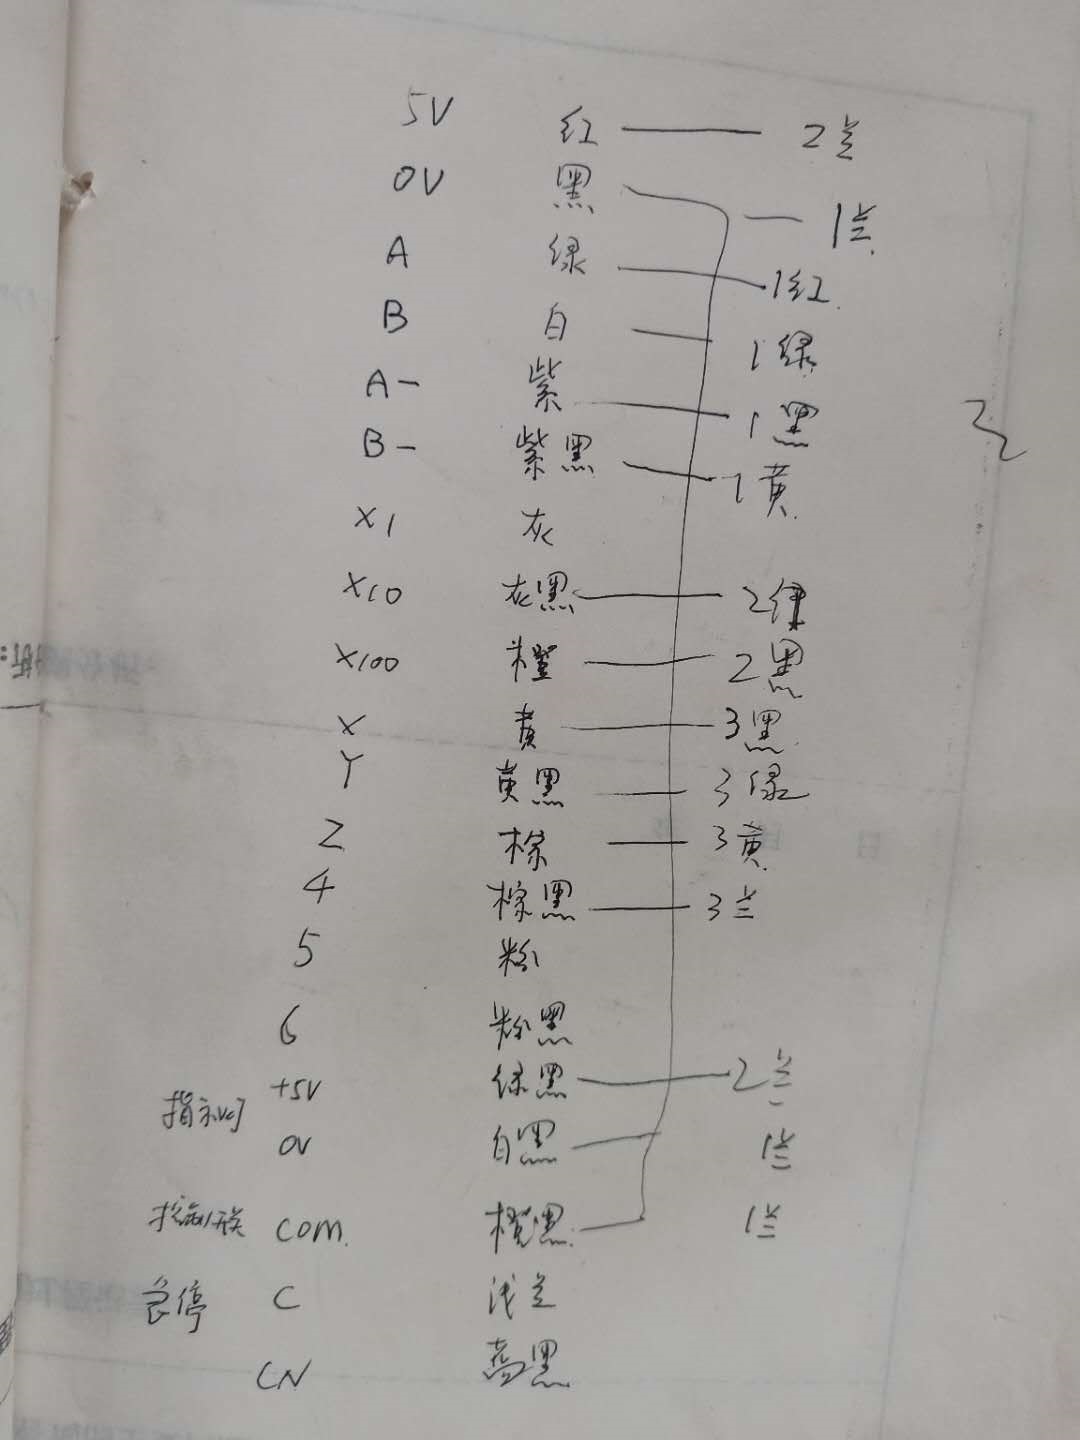 5V 红 2兰
0V 黑 1兰
A 绿 1红
B 白 1绿
A- 紫 1黑
B- 紫黑 1黄
X1 灰
X10 灰黑 2绿
X100 橙 2黑
X 黄 3黑
Y 黄黑 3绿
Z 棕 3黄
4 棕黑 3兰
5 粉
6 粉黑
指示灯 +5V 绿黑 2兰
0V 白黑 1兰
COM. 橙黑 1兰
急停 C 浅兰
CN 黑